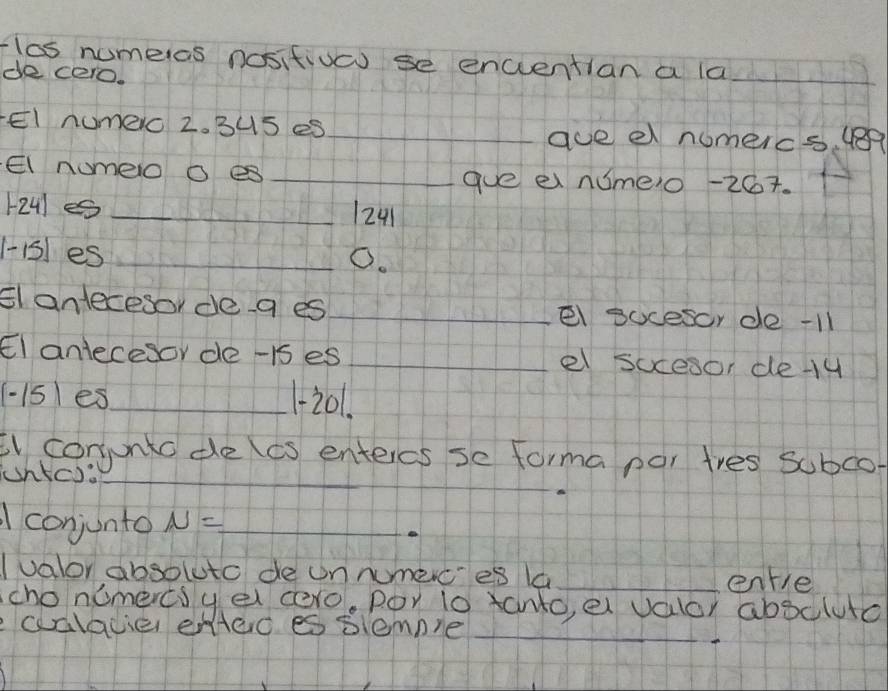 -los numeros positivos se encuentran a la ______
de cero.
-El numero 2.345 es ______ que el numero 5.489
-El numero 0 es ______ que el número -267.
|-24| es ______ |24|
|-15| es ______ 0.
El antecesor de -9 es ______ el sucesor de -11
El antecesor de -15 es ______ el sucesor de -14
|-15| es ______ |-20|.
El conjunto de los enteros se forma por tres subco-
juntos: ______.
l conjunto N = ______.
l valor absoluto de un numero es la ______ entre
cho números y el cero. Por lo tanto, el valor absoluto
e cualquier entero es siempre ______.